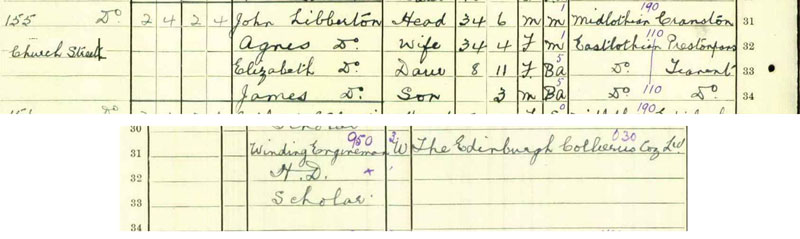 190
155 Do. 2 4 2 4 John Libberton Head 34 6 M M 1 Midlothian Cranston 31
110
Church Street Agnes Do. Wife 34 4 F. M 1 Eastlothian Prestonpans 32
Elizabeth Do. Daur 8 11 F. Ba 5 Do. Tranent 33
James Do. Son 3 M Ba 5 Do. 110 Do. 34
190
30 Scholar
950 030
31 Winding Engineman W The Edinburgh Collieries Coy Ltd. 31
32 H.D. 32
33 Scholar 33
34